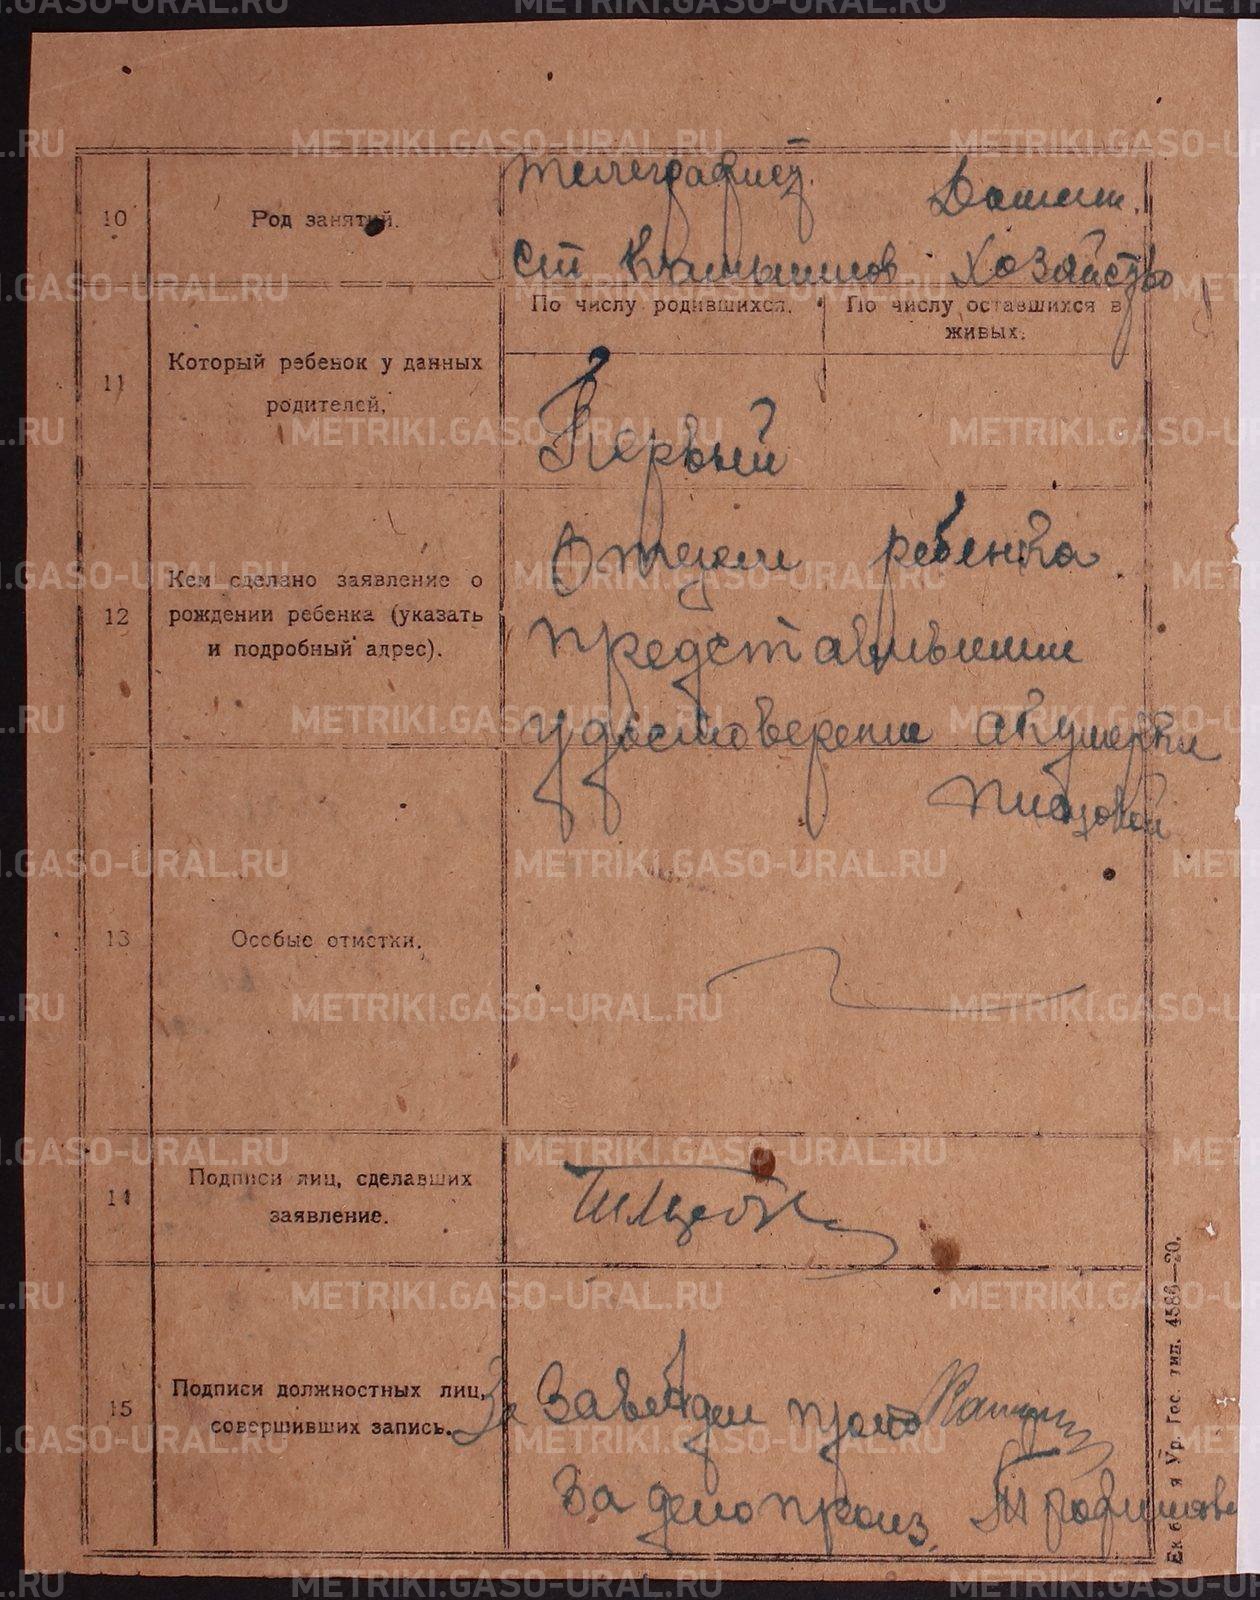 10
Род занятий.
телеграфист. Домашн.
ст Камышлов хозяйство
11
Который ребенок у данных
родителей,
По числу родившихся.
По числу оставшихся в
живых.
Первый
12
Кем сделано заявление о
рождении ребенка (указать
и подробный адрес).
Отцем ребенка
представившим
удостоверение акушерки
13
Особые отметки.
14
Подписи лиц, сделавших
заявление.
15
Подписи должностных лиц,
совершивших запись.
За Заведующ
За делопроиз.
Ур. Гос. тип. 4586—20.
METRIKI.GASO-URAL.RU